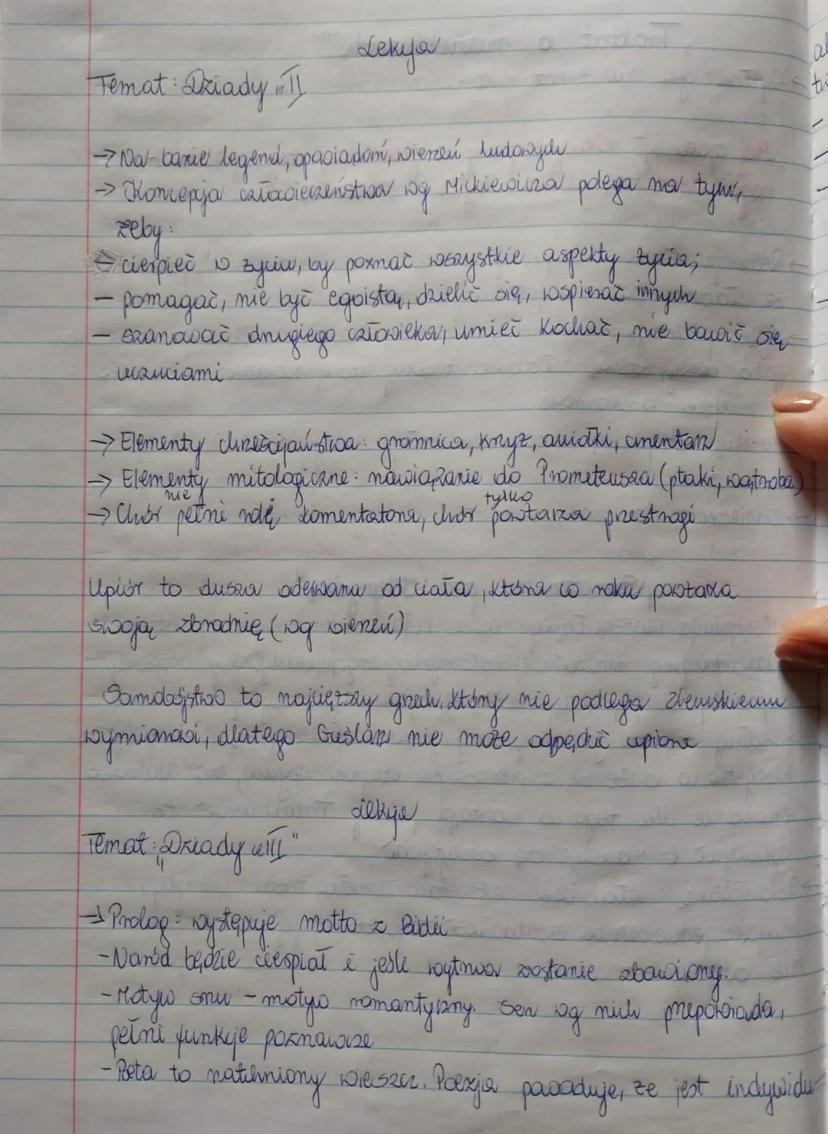 Lekcja
Temat: Dziady cz. II
→ Na bazie legend, opowiadań, wierzeń ludowych
→ Koncepcja człowieczeństwa wg Mickiewicza polega na tym,
żeby:
– cierpieć w życiu, by poznać wszystkie aspekty życia;
– pomagać, nie być egoistą, dzielić się, wspierać innych
– szanować drugiego człowieka, umieć kochać, nie bawić się
uczuciami
→ Elementy chrześcijaństwa: gromnica, krzyż, aniołki, cmentarz
→ Elementy mitologiczne: nawiązanie do Prometeusza (ptaki, wątroba)
→ Chór nie pełni rolę komentatora, chór tylko powtarza przestrogi
Upiór to dusza oderwana od ciała, która co roku powtarza
swoją zbrodnię (wg wierzeń)
Samobójstwo to najcięższy grzech, który nie podlega ziemskiemu
wymiarowi, dlatego Guślarz nie może odpędzić upiora
Lekcja
Temat: „Dziady cz. III"
→ Prolog: występuje motto z Biblii
- Naród będzie cierpiał i jeśli wytrwa zostanie zbawiony.
- Motyw snu – motyw romantyczny. Sen wg nich przepowiada,
pełni funkcje poznawcze
- Poeta to natchniony wieszcz. Poezja powoduje, że jest indywidu-